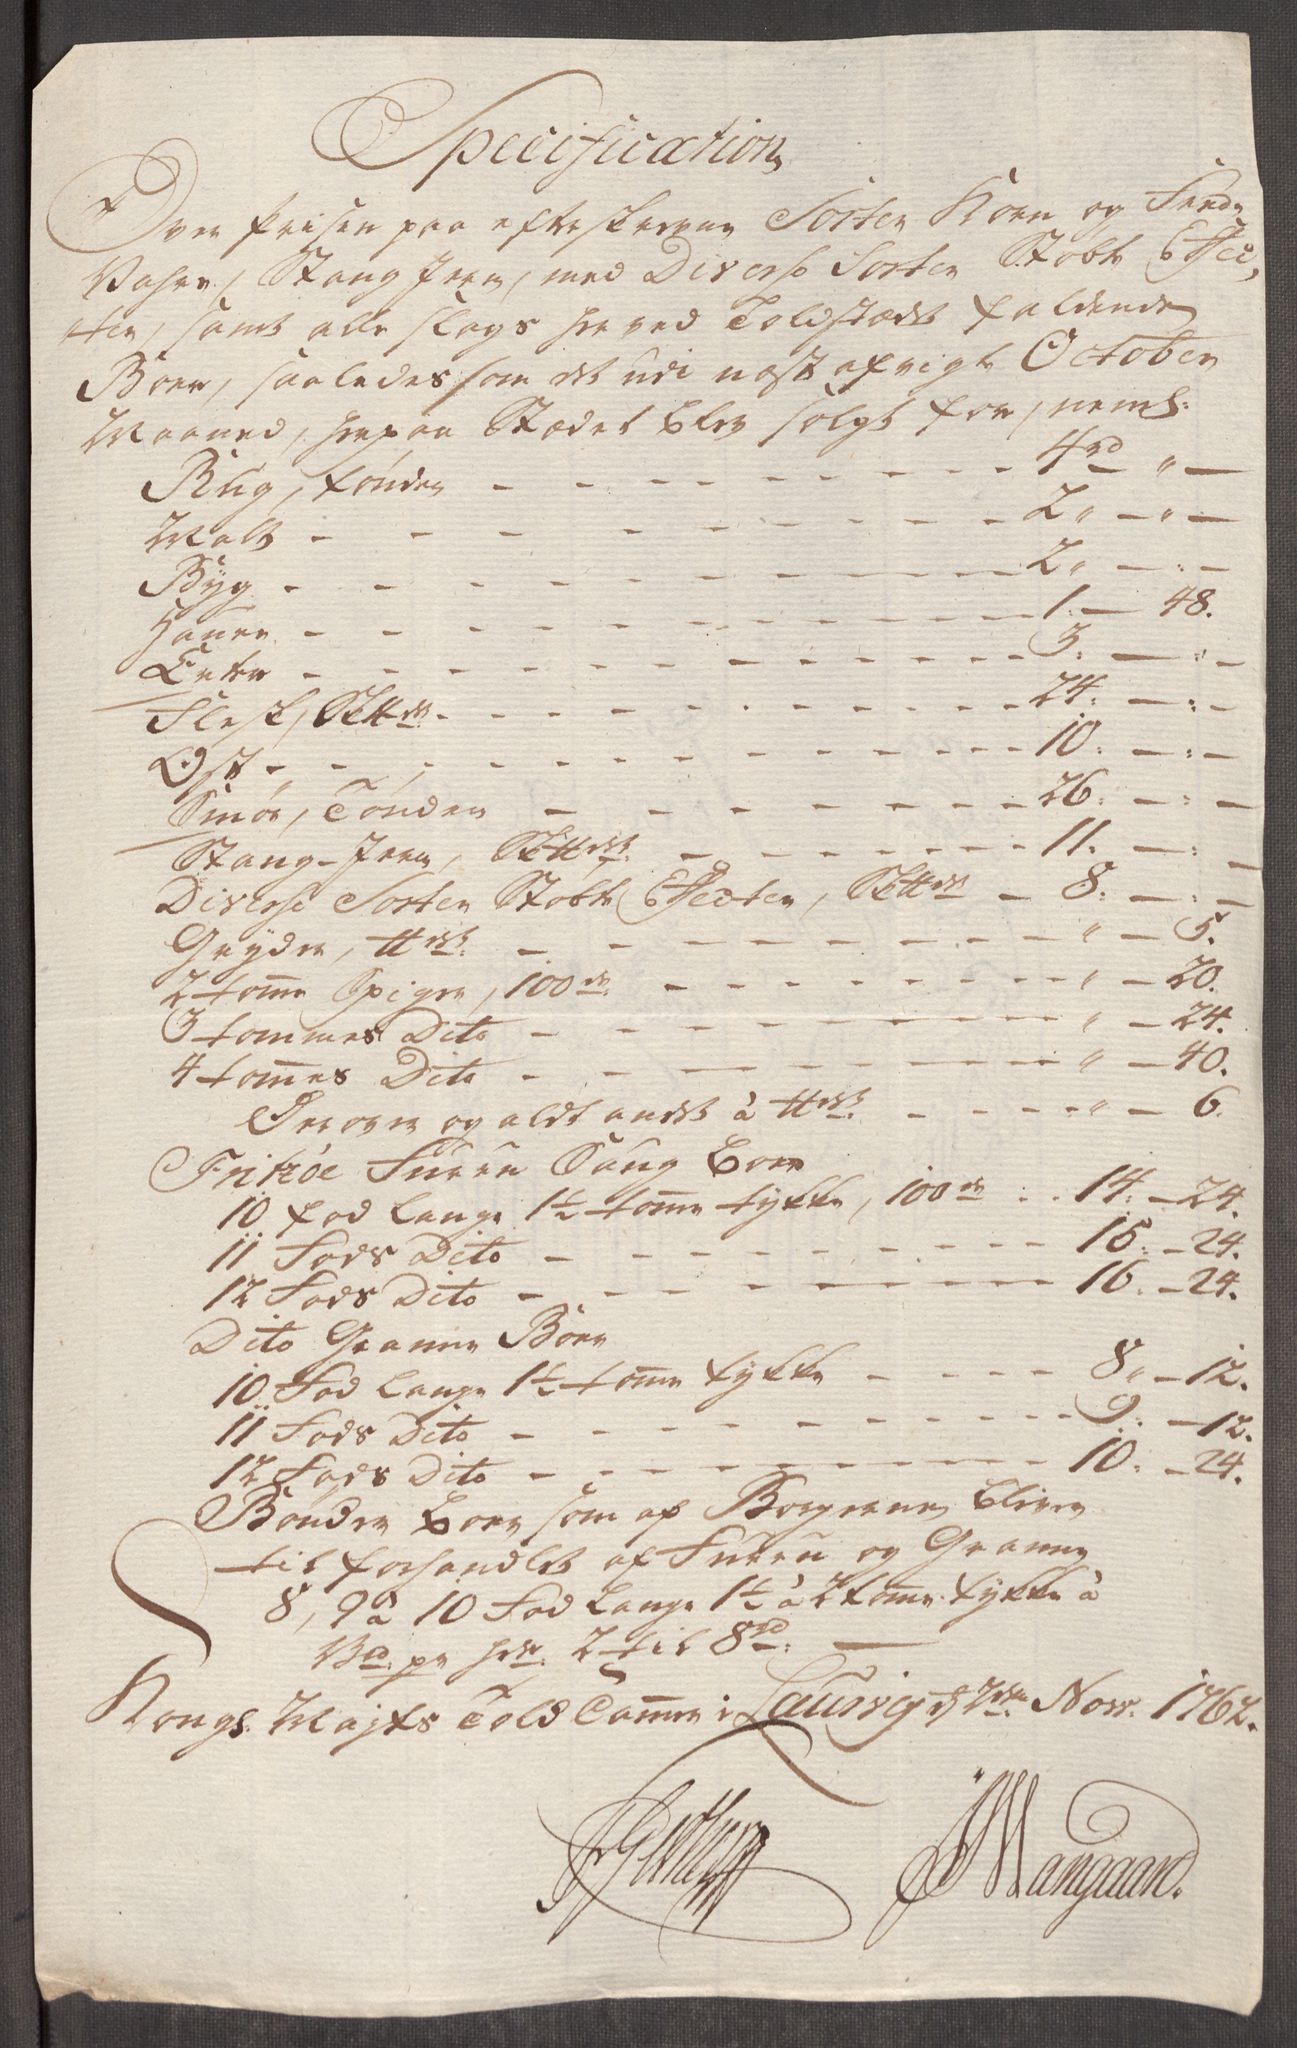 Specification
Over Prisen paa efterskrevne Sorter Korn og Fende
Vahre, Stang Jern, med Diverse Sorter Støbte Effec-
ter, samt alle slags her ved Toldstædet faldende
Bord, saaledes som det udi næst afvigte October
Maaned, her paa Stædet blev solgt for, neml:
Rug, tønden - - - 4 rd " -
Malt - - - 2 " - " -
Byg - - - 2 " - : -
Haure - - - 1 : - 48.
Erter - - - 3 : - : -
Flesk, Sk℔det - - - 24 : - : -
Ost - - - 10 : - : -
Smør, Tønden - - - 26 : - : -
Stang-Jern, Sk℔det - - - 11 : - : -
Diverse Sorter Støbte Effecter, Sk℔det - 8 : - : -
Gryder, ℔det - - - " - 5.
2 tomme Spiger, 100de - - - " - 20.
3 tommes Dito - - - " - 24.
4 tommes Dito - - - " - 40.
og aldt andet à ℔det - - - " - 6.
Fritzøe Furru Saug Bord
10 fod Lange 1½ tomme tykke, 100de - - 14 : - 24.
11 Fods Dito - - - 15 : - 24.
12 Fods Dito - - - 16 : - 24.
Dito Granne Bord
10 Fod Lange 1½ tomme tykke - - - 8 " - 12.
11 Fods Dito - - - 9 : - 12.
12 Fods Dito - - - 10 : - 24.
Bønder Bord som af Borgerne bliver
til forhandlet af Furru og Granne
8, 9 à 10 Fod Lange 1½ à 2 tomme tykke à
pr 2 til 8 rd : -
Kongl. Majts Told Cammer i Laurvig d 2den Novr. 1762.
Mangaard.